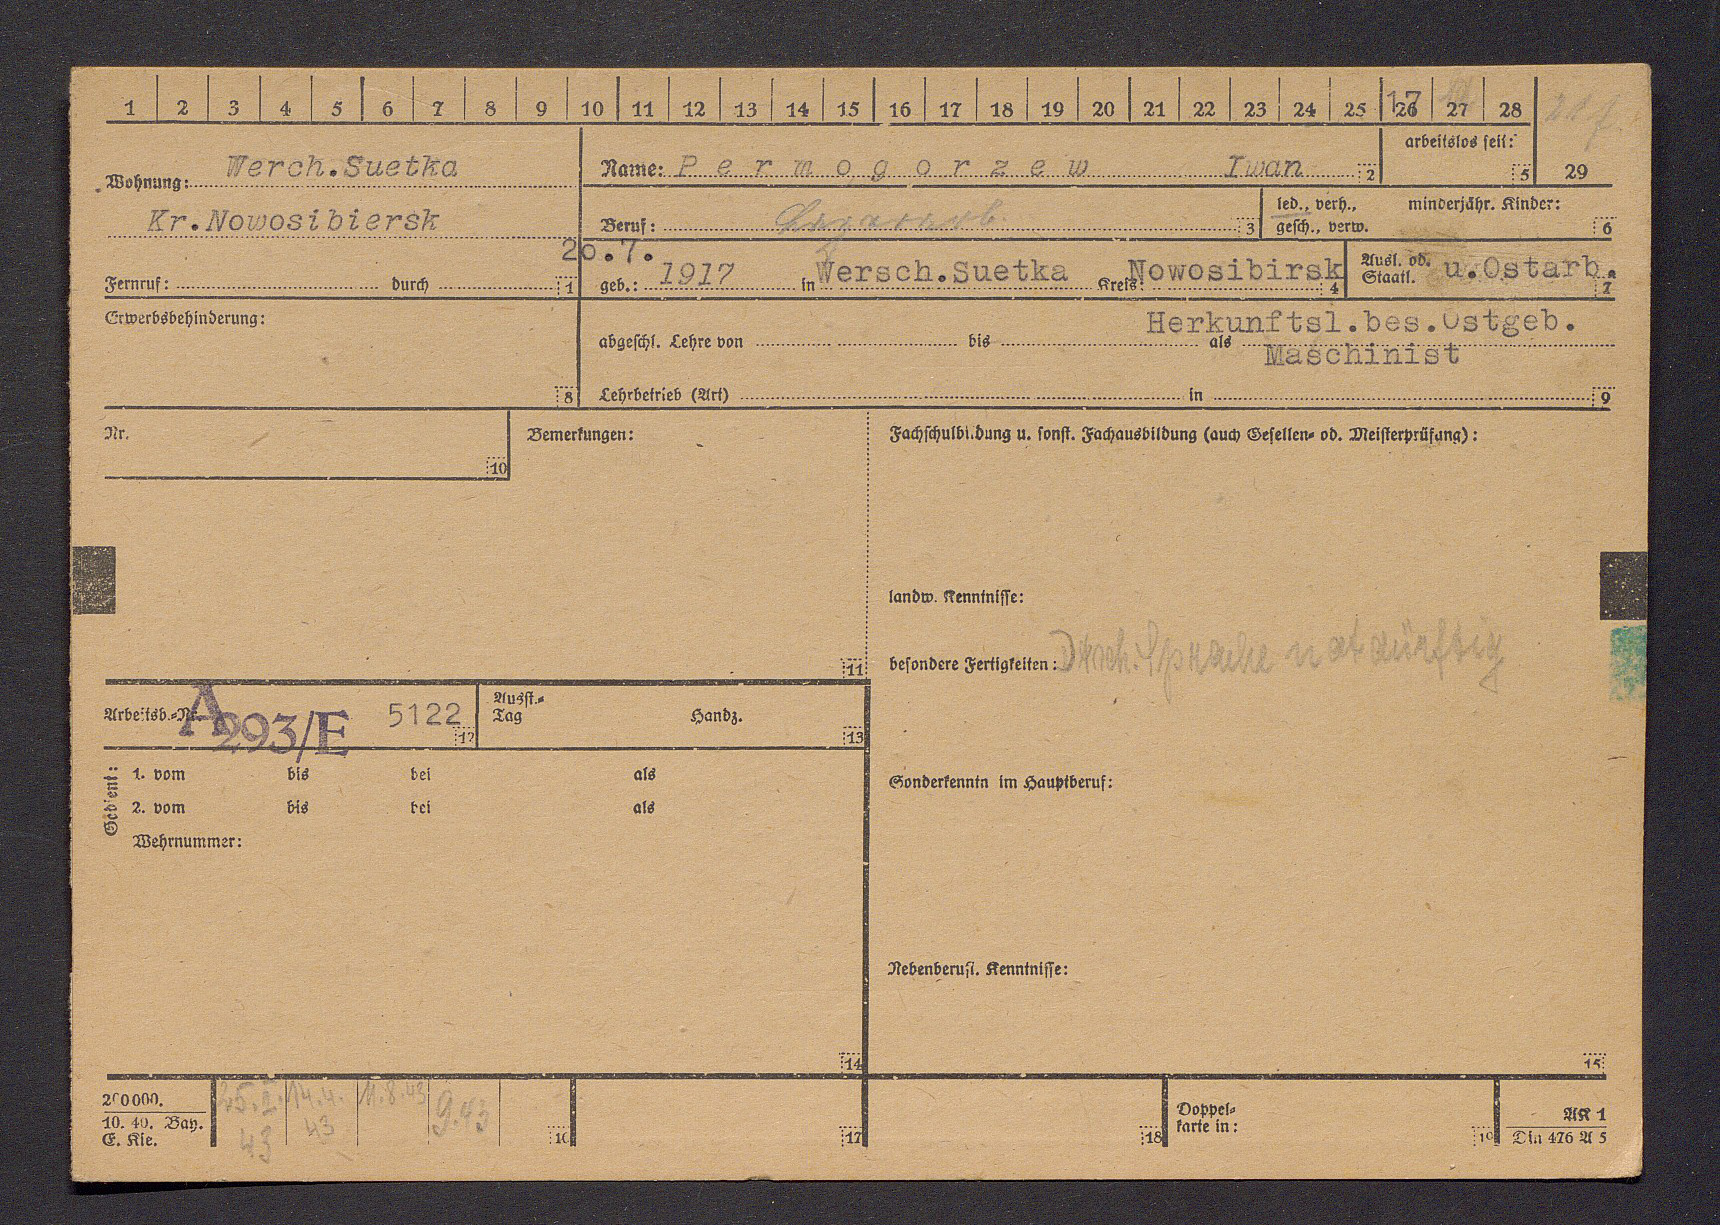 1 2 3 4 5 6 7 8 9 10 11 12 13 14 15 16 17 18 19 20 21 22 23 24 25 26 27 28
17
arbeitslos seit:
5 29
Wohnung: Werch.Suetka
Kr.Nowosibiersk
Fernruf: durch 1
Name: Permogorzew Iwan 2
Beruf: 3
led., verh., minderjähr. Kinder:
gesch., verw. 6
20.7.
geb.: 1917 in Wersch.Suetka Kreis Nowosibirsk 4
Ausl. od. Staatl. u.Ostarb. 7
Erwerbsbehinderung:
8
Herkunftsl.bes.Ostgeb.
abgeschl. Lehre von bis als
Maschinist
Lehrbetrieb (Art) in 9
Nr.
10
Bemerkungen:
11
Fachschulbildung u. sonst. Fachausbildung (auch Gesellen- od. Meisterprüfung):
landw. Kenntnisse:
besondere Fertigkeiten: Dtsch. Sprache notdürftig
Sonderkenntn im Hauptberuf:
Nebenberufl. Kenntnisse:
15
Arbeitsb.-Nr. A 293/E 5122 12
Ausst.-
Tag Handz.
13
Gedient:
1. vom bis bei als
2. vom bis bei als
Wehrnummer:
14
200000.
10. 40. Bay.
E. Kie.
14.4.43
11.8.43
9.43
16
17
18
Doppel-
karte in:
19
AK 1
Din 476 A 5